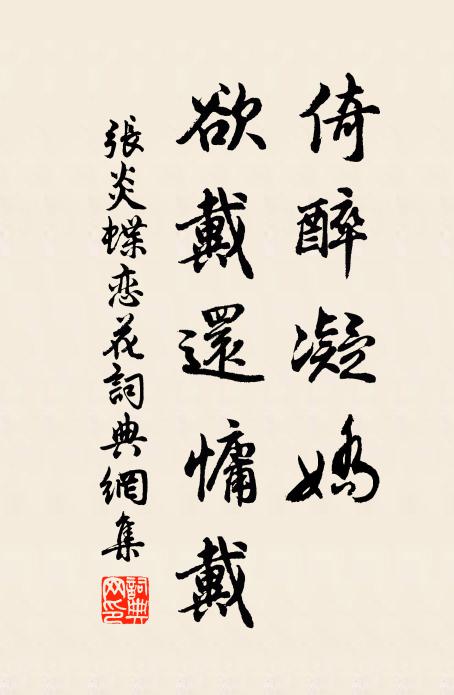 倚醉凝嬌
欲戴還慵戴
張炎蝶恋花詞典網集
詞典網印